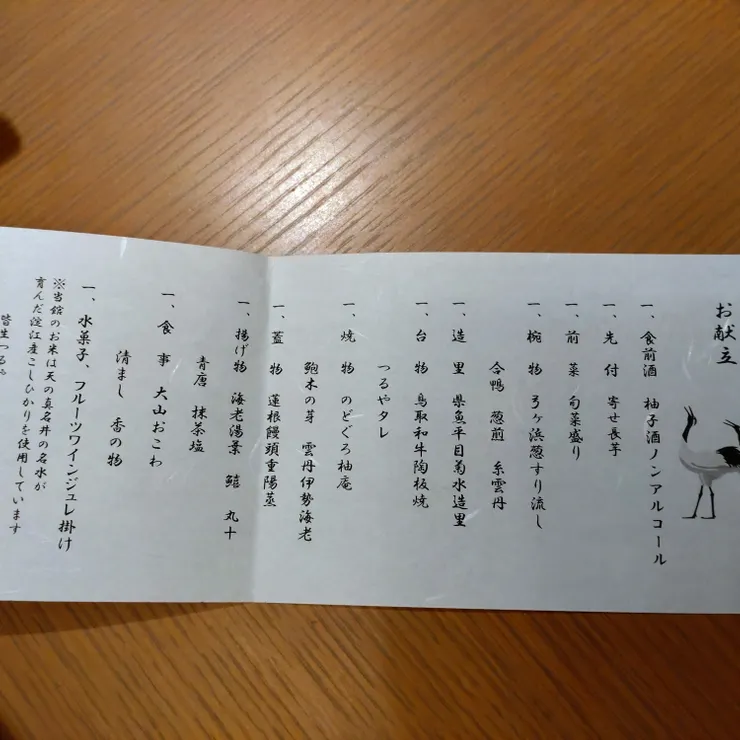 お献立
一、食前酒　柚子酒ノンアルコール
一、先　付　寄せ長芋
一、前　菜　旬菜盛り
一、椀　物　弓ヶ浜葱すり流し
合鴨　葱煎　糸雲丹
一、造　里　県魚平目菊水造里
一、台　物　鳥取和牛陶板焼
つるやタレ
一、焼　物　のどぐろ柚庵
鮑木の芽　雲丹伊勢海老
一、蓋　物　蓮根饅頭重陽蒸
一、揚げ物　海老湯葉　鱚　丸十
青唐　抹茶塩
一、食　事　大山おこわ
清まし　香の物
一、水菓子、フルーツワインジュレ掛け
※当館のお米は天の真名井の名水が
育んだ淀江産こしひかりを使用しています
皆生つるや